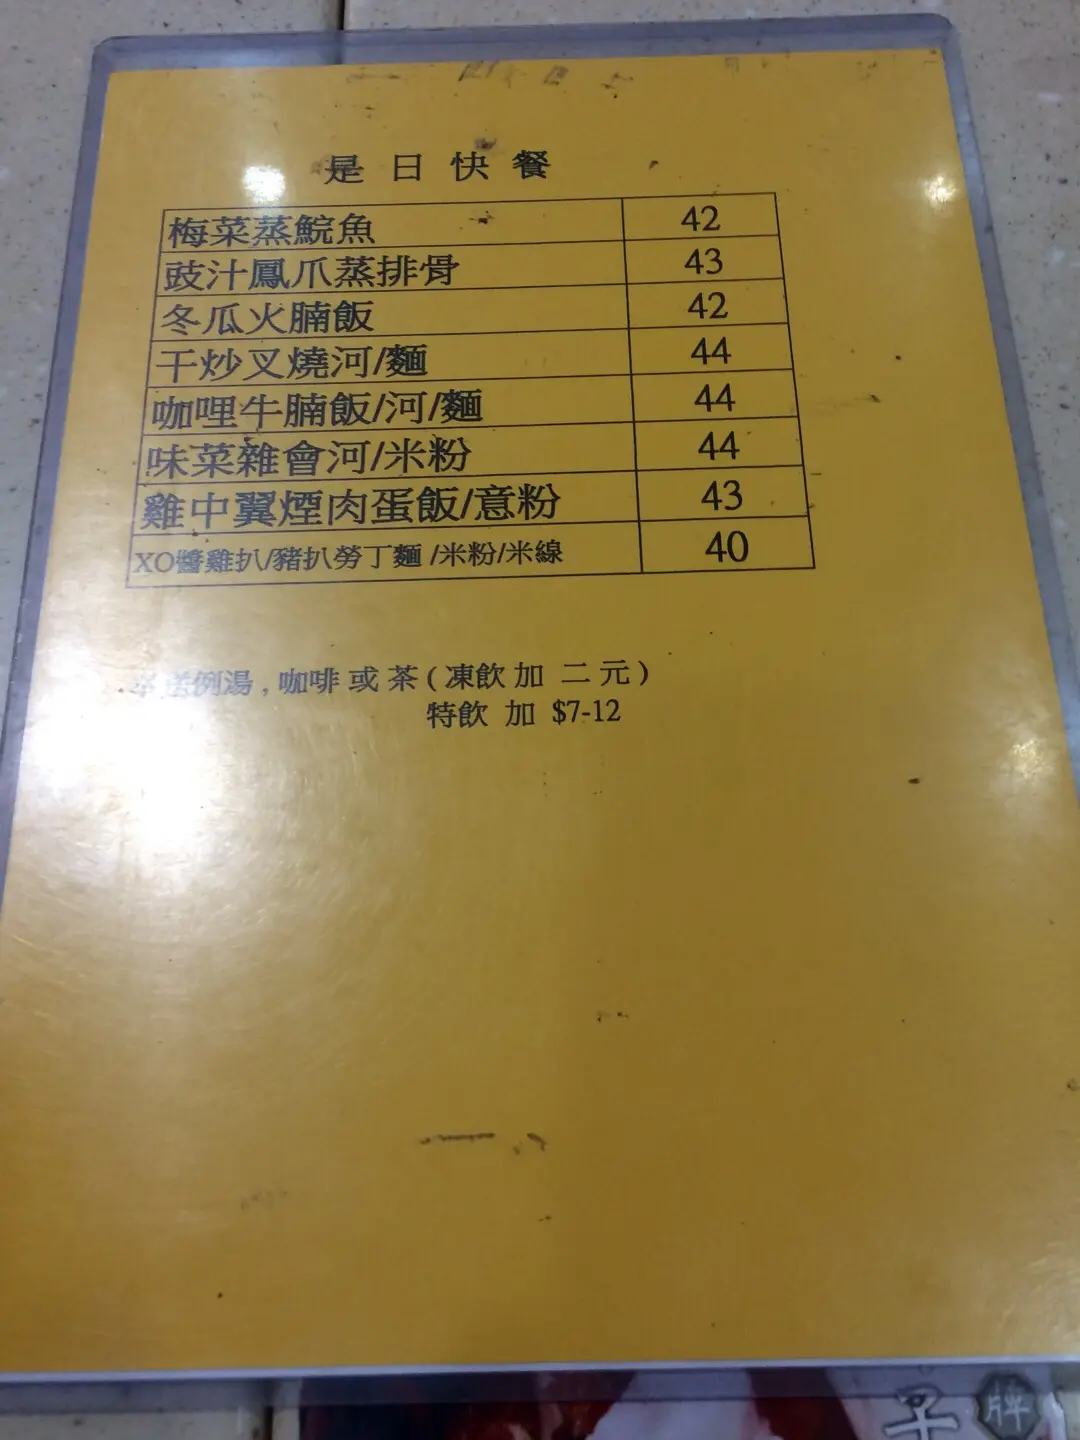 是日快餐
梅菜蒸鯇魚 42
豉汁鳳爪蒸排骨 43
冬瓜火腩飯 42
干炒叉燒河/麵 44
咖哩牛腩飯/河/麵 44
味菜雜會河/米粉 44
雞中翼煙肉蛋飯/意粉 43
XO醬雞扒/豬扒勞丁麵 /米粉/米線 40
送例湯 , 咖啡 或 茶 ( 凍飲 加 二 元 )
特飲 加 $7-12
子 牌